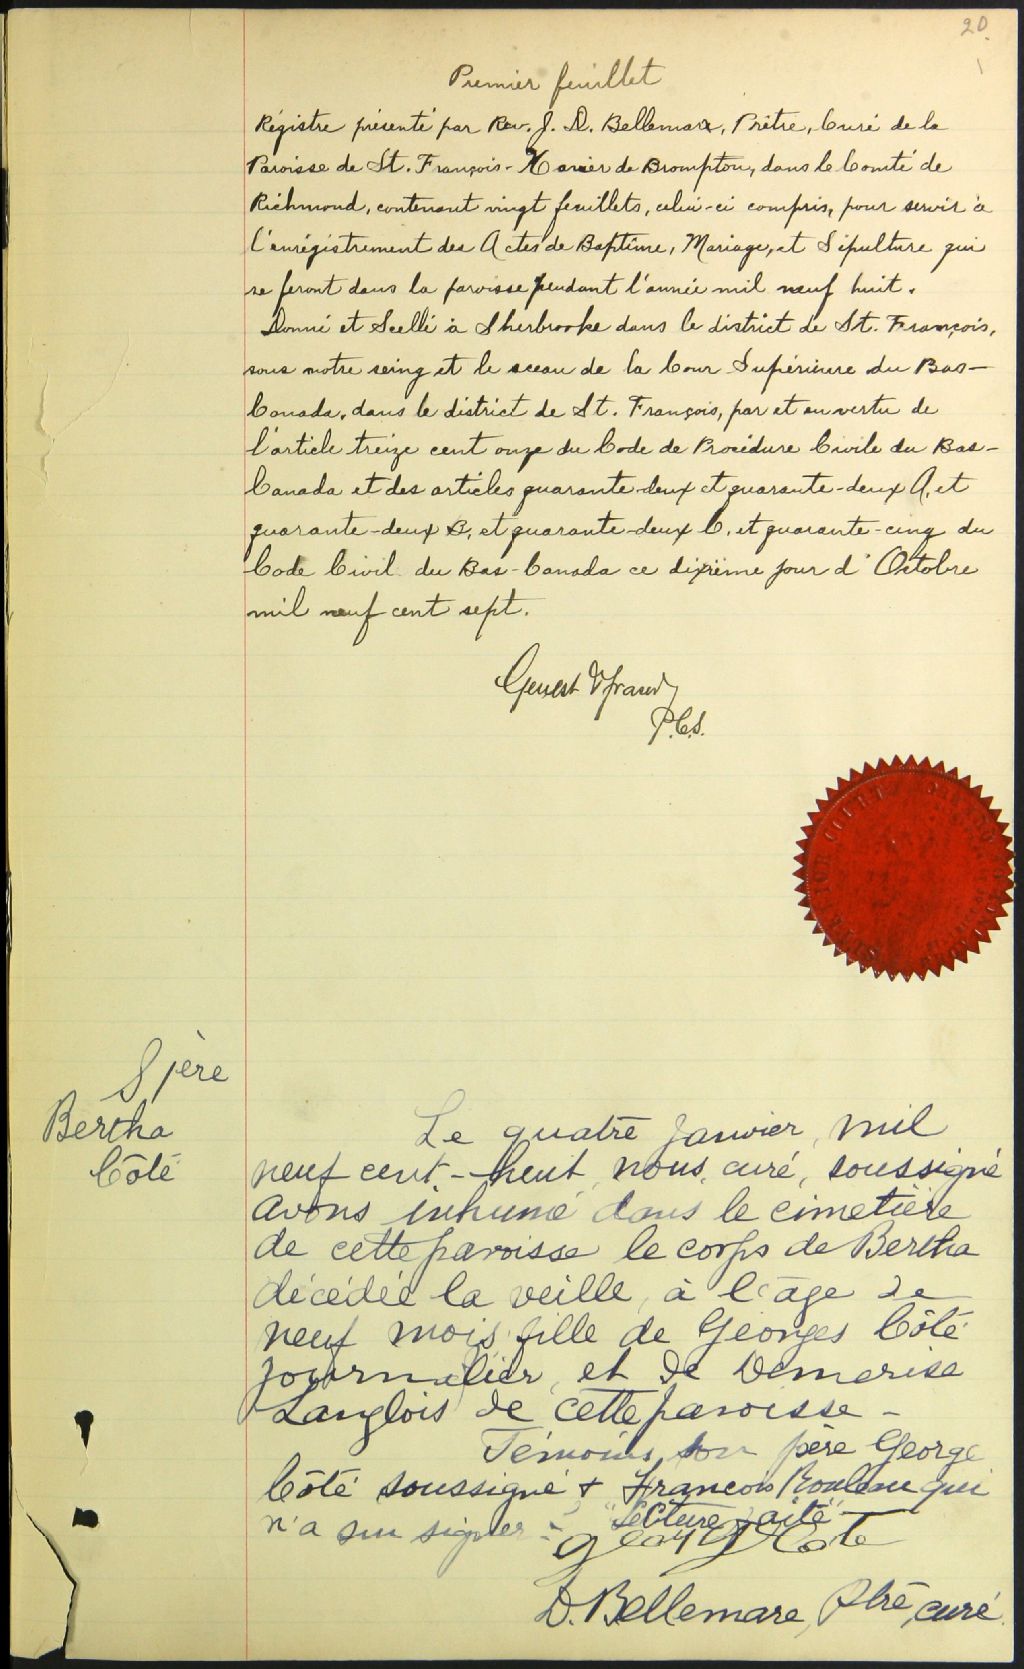 20.
Premier feuillet
Régistre présenté par Rev. J. D. Bellemare, Prêtre, Curé de la
Paroisse de St. François-Xavier de Brompton, dans le Comté de
Richmond, contenant vingt feuillets, celui-ci compris, pour servir à
l'enrégistrement des Actes de Baptême, Mariage, et Sépulture qui
se feront dans la paroisse pendant l'année mil neuf huit.
Donné et Scellé à Sherbrooke dans le district de St. François,
sous notre seing et le sceau de la Cour Supérieure du Bas-
Canada, dans le district de St. François, par et en vertu de
l'article treize cent onze du Code de Procédure Civile du Bas-
Canada et des articles quarante-deux et quarante-deux A, et
quarante-deux B, et quarante-deux C, et quarante-cinq du
Code Civil du Bas-Canada ce dixième jour d'Octobre
mil neuf cent sept.
P.C.S.
S 1ère
Bertha
Côté
Le quatre janvier, mil
neuf cent-huit, nous, curé, soussigné
avons inhumé dans le cimetière
de cette paroisse le corps de Bertha
décédée la veille, à l'âge de
neuf mois, fille de Georges Côté
journalier, et de Demerise
Langlois de cette paroisse -
Témoins, son père George
Côté soussigné + François Rouleau qui
n'a su signer - "Lecture faite"
George Cote
D. Bellemare, Ptre, curé.